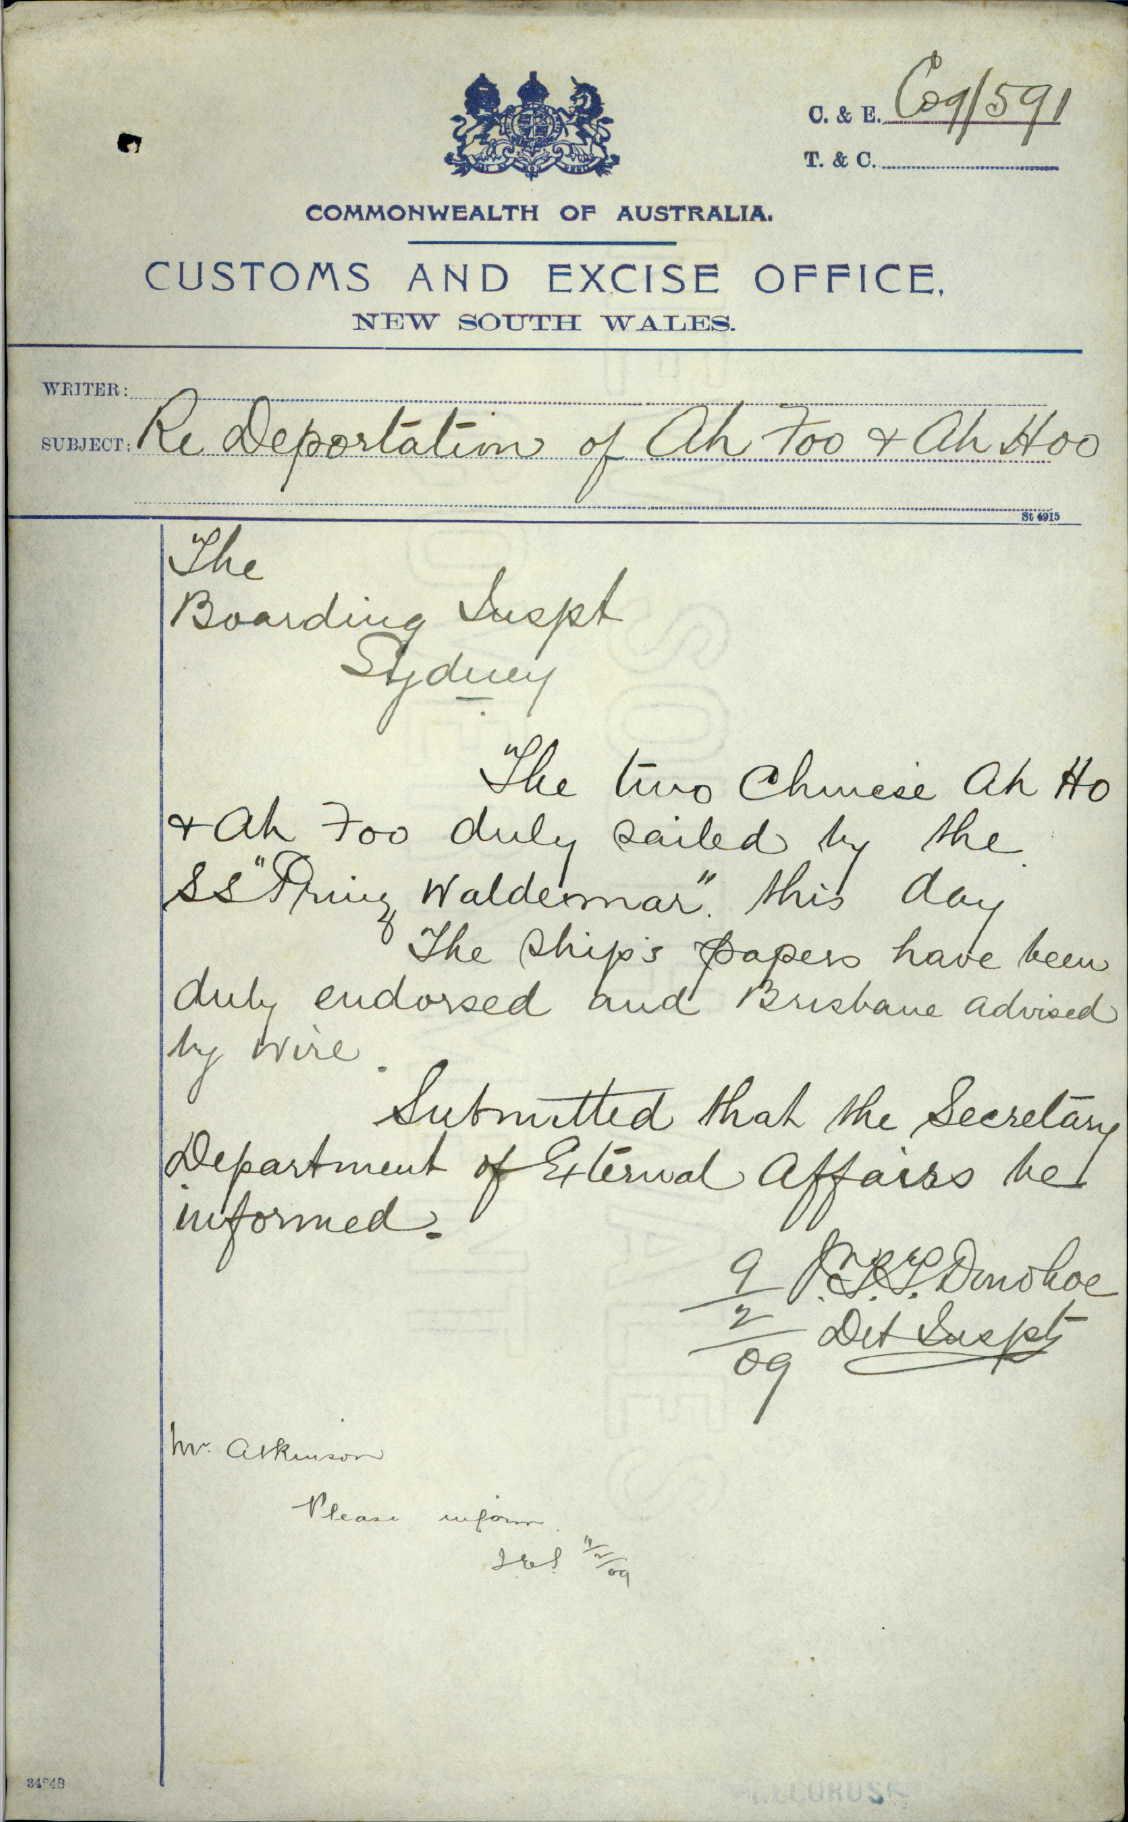 C. & E. C09/591
T. & C.
COMMONWEALTH OF AUSTRALIA.
CUSTOMS AND EXCISE OFFICE,
NEW SOUTH WALES.
WRITER:
SUBJECT: Re Deportation of Ah Foo & Ah Hoo
St 4915
The
Boarding Inspt
Sydney
The two Chinese Ah Ho
& Ah Foo duly sailed by the
SS "Prinz Waldemar". this day
The ship's papers have been
duly endorsed and Brisbane advised
by wire.
Submitted that the Secretary
Department of External Affairs be
informed.
9/2/09 Donohoe
Det Inspt
Mr. Atkinson
Please inform
11/2/09